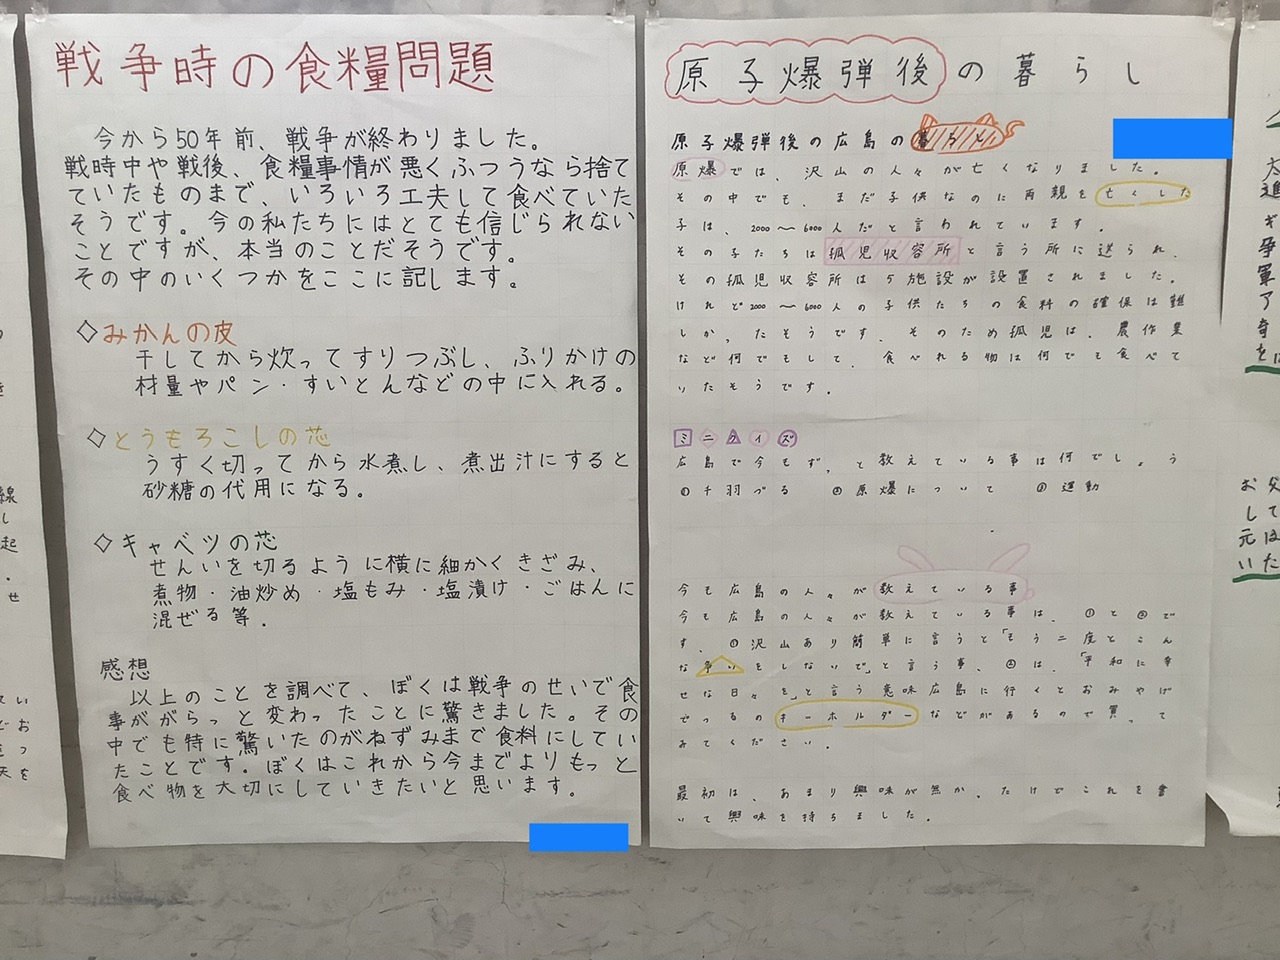 戦争時の食糧問題
今から50年前、戦争が終わりました。
戦時中や戦後、食糧事情が悪くふつうなら捨て
ていたものまで、いろいろ工夫して食べていた
そうです。今の私たちにはとても信じられない
ことですが、本当のことだそうです。
その中のいくつかをここに記します。
◇みかんの皮
干してから炊ってすりつぶし、ふりかけの
材量やパン・すいとんなどの中に入れる。
◇とうもろこしの芯
うすく切ってから水煮し、煮出汁にすると
砂糖の代用になる。
◇キャベツの芯
せんいを切るように横に細かくきざみ、
煮物・油炒め・塩もみ・塩漬け・ごはんに
混ぜる等.
感想
以上のことを調べて、ぼくは戦争のせいで食
事ががらっと変わったことに驚きました。その
中でも特に驚いたのがねずみまで食料にしてい
たことです。ぼくはこれから今までよりもっと
食べ物を大切にしていきたいと思います。
原子爆弾後の暮らし
原子爆弾後の広島の
原爆では、沢山の人々が亡くなりました。
その中でも、まだ子供なのに両親を亡くした
子は、2000〜6000人だと言われています。
その子たちは孤児収容所と言う所に送られ、
その孤児収容所は5施設が設置されました。
けれど2000〜6000人の子供たちの食料の確保は難
しかったそうです。そのため孤児は、農作業
など何でもして、食べれる物は何でも食べて
いたそうです。
ミニクイズ
広島で今もずっと教えている事は何でしょう
①千羽づる ②原爆について ③運動
今も広島の人々が教えている事
今も広島の人々が教えている事は、①と②で
す、①沢山あり簡単に言うと「もう二度とこん
な争いをしないで」と言う事、②は、「平和に幸
せな日々を」と言う意味広島に行くとおみやげ
でつるのキーホルダーなどがあるので買って
みてください。
最初は、あまり興味が無かったけどこれを書
いて興味を持ちました。
線
し
起
・
せ
い
お
つ
を
太
進
ギ
争
軍
ア
奇
を
父
おして
しては
元
いた